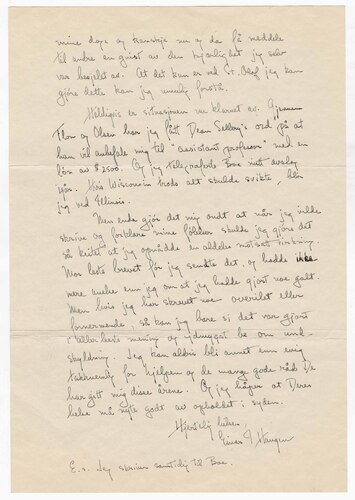 mine dage og kanskje nu og da få meddele
til andre en gnist av den kjærlighet jeg selv
var besjelet av. At det kun er ved St. Olaf jeg kan
gjøre dette kan jeg umulig forstå.
Heldigvis er situasjonen nu klarnet av. Gjennem
Flom og Olsen har jeg fått Dean Sellery's ord på at
han vil anbefale mig til "assistant professor" med en
lön av $2500. Og jeg telegraferte Boe mitt avslag
igår. Hvis Wisconsin trods alt skulde svikte, blir
jeg ved Illinois.
Men enda gjør det mig ondt at når jeg vilde
skrive og forklare mine følelser skulde jeg gjøre det
så keitet at jeg opnådde en aldeles motsatt virkning.
Mor leste brevet før jeg sendte det, og hadde ikke
mere anelse enn jeg om at jeg hadde gjort noe galt.
Men hvis jeg har skrevet noe overilet eller
fornærmende, så kan jeg bare si det var gjort
i aller beste mening og ydmygst be om und-
skyldning. Jeg kan aldri bli annet enn evig
takknemlig for hjelpen og de mange gode råd De
har gitt mig disse årene. Og jeg håper at Deres
helse må nyte godt av opholdet i syden.
Hjertelig hilsen,
Einar I. Haugen
E.s. Jeg skriver samtidig til Boe.